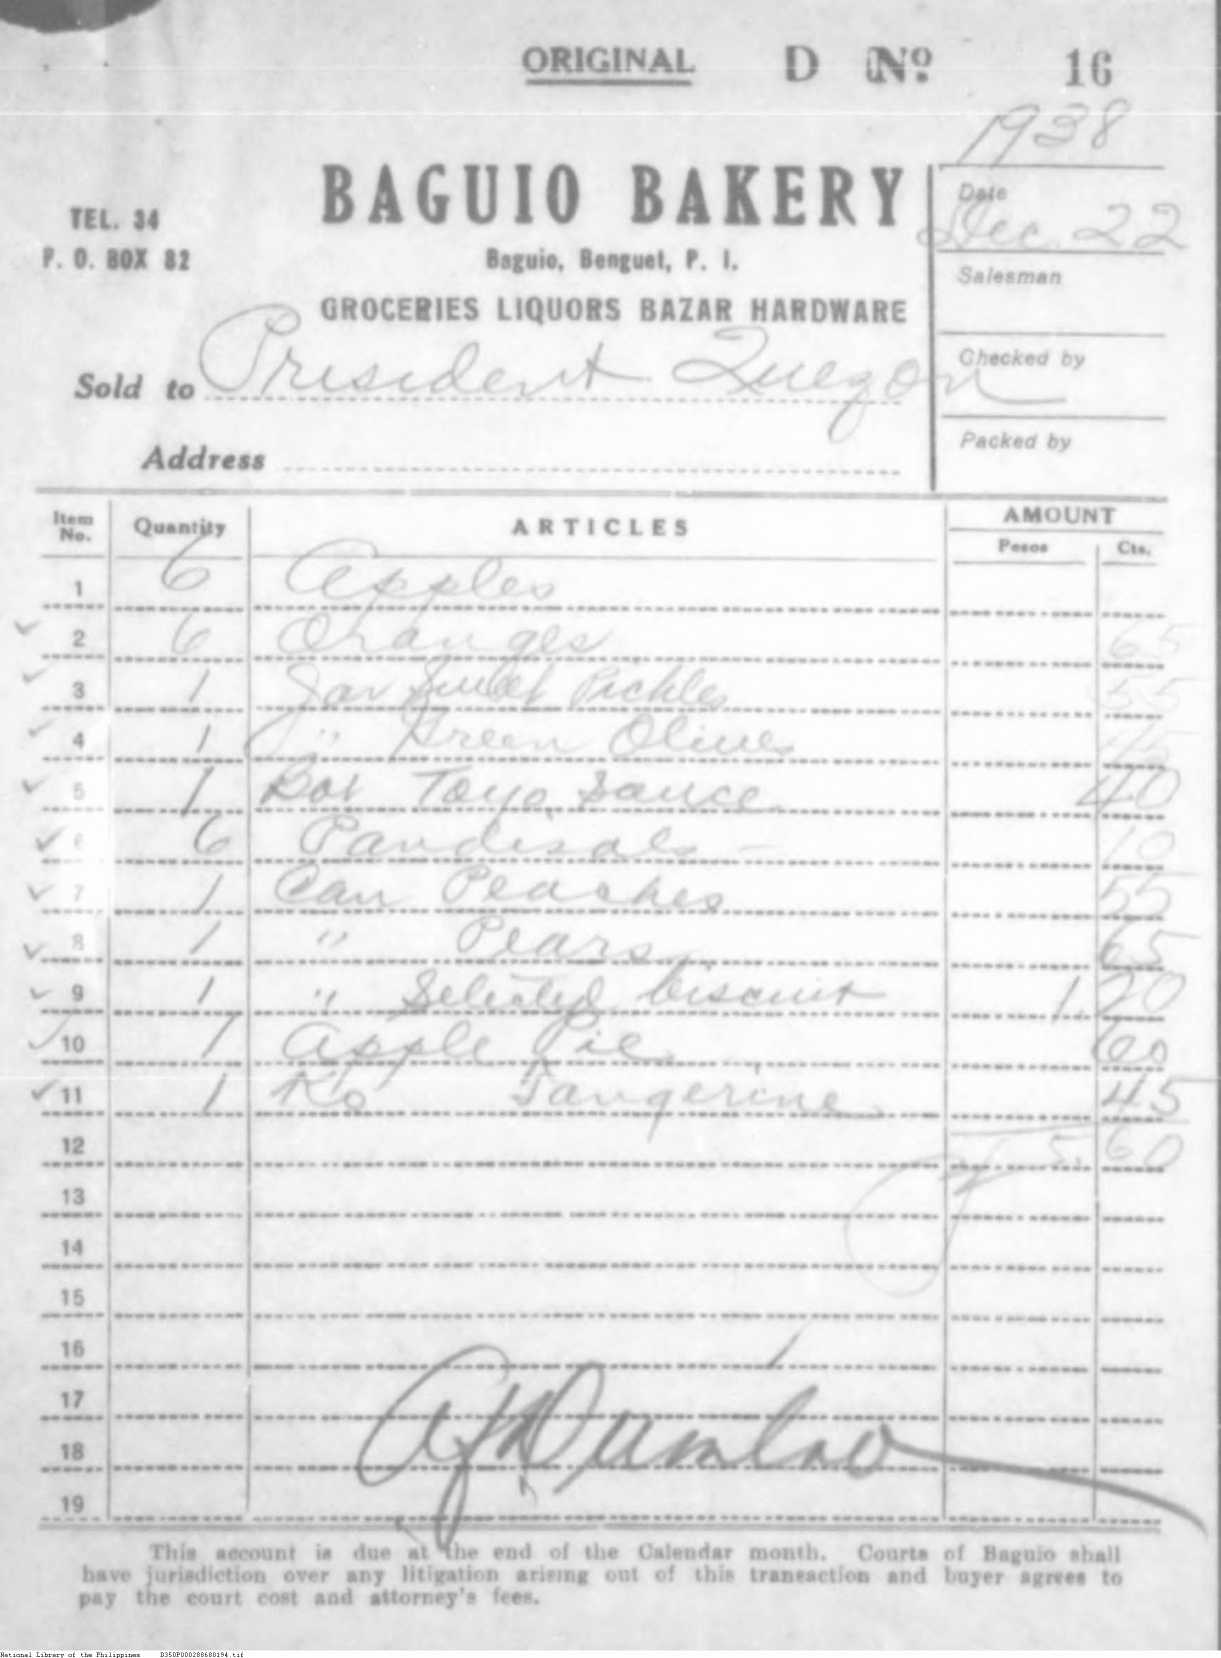 ORIGINAL D No. 16
1938
BAGUIO BAKERY
TEL. 34
P. O. BOX 82
Baguio, Benguet, P. I.
GROCERIES LIQUORS BAZAR HARDWARE
Date Dec. 22
Salesman
Checked by
Packed by
Sold to President Quezon
Address
Item No. Quantity ARTICLES AMOUNT Pesos Cts.
1 6 Apples
2 6 Oranges 65
3 1 Jar Sweet Pickles 55
4 1 " Green Olives 45
5 1 Bot Toyo Sauce 40
6 6 Pandisals — 10
7 1 Can Peaches 55
8 1 " Pears 65
9 1 " Selected biscuit 1.20
10 1 Apple Pie 60
11 1 Ko Tangerine 45
12 5.60
13
14
15
16
17
18
19
This account is due at the end of the Calendar month. Courts of Baguio shall
have jurisdiction over any litigation arising out of this transaction and buyer agrees to
pay the court cost and attorney's fees.
National Library of the Philippines D350P000288680194.tif